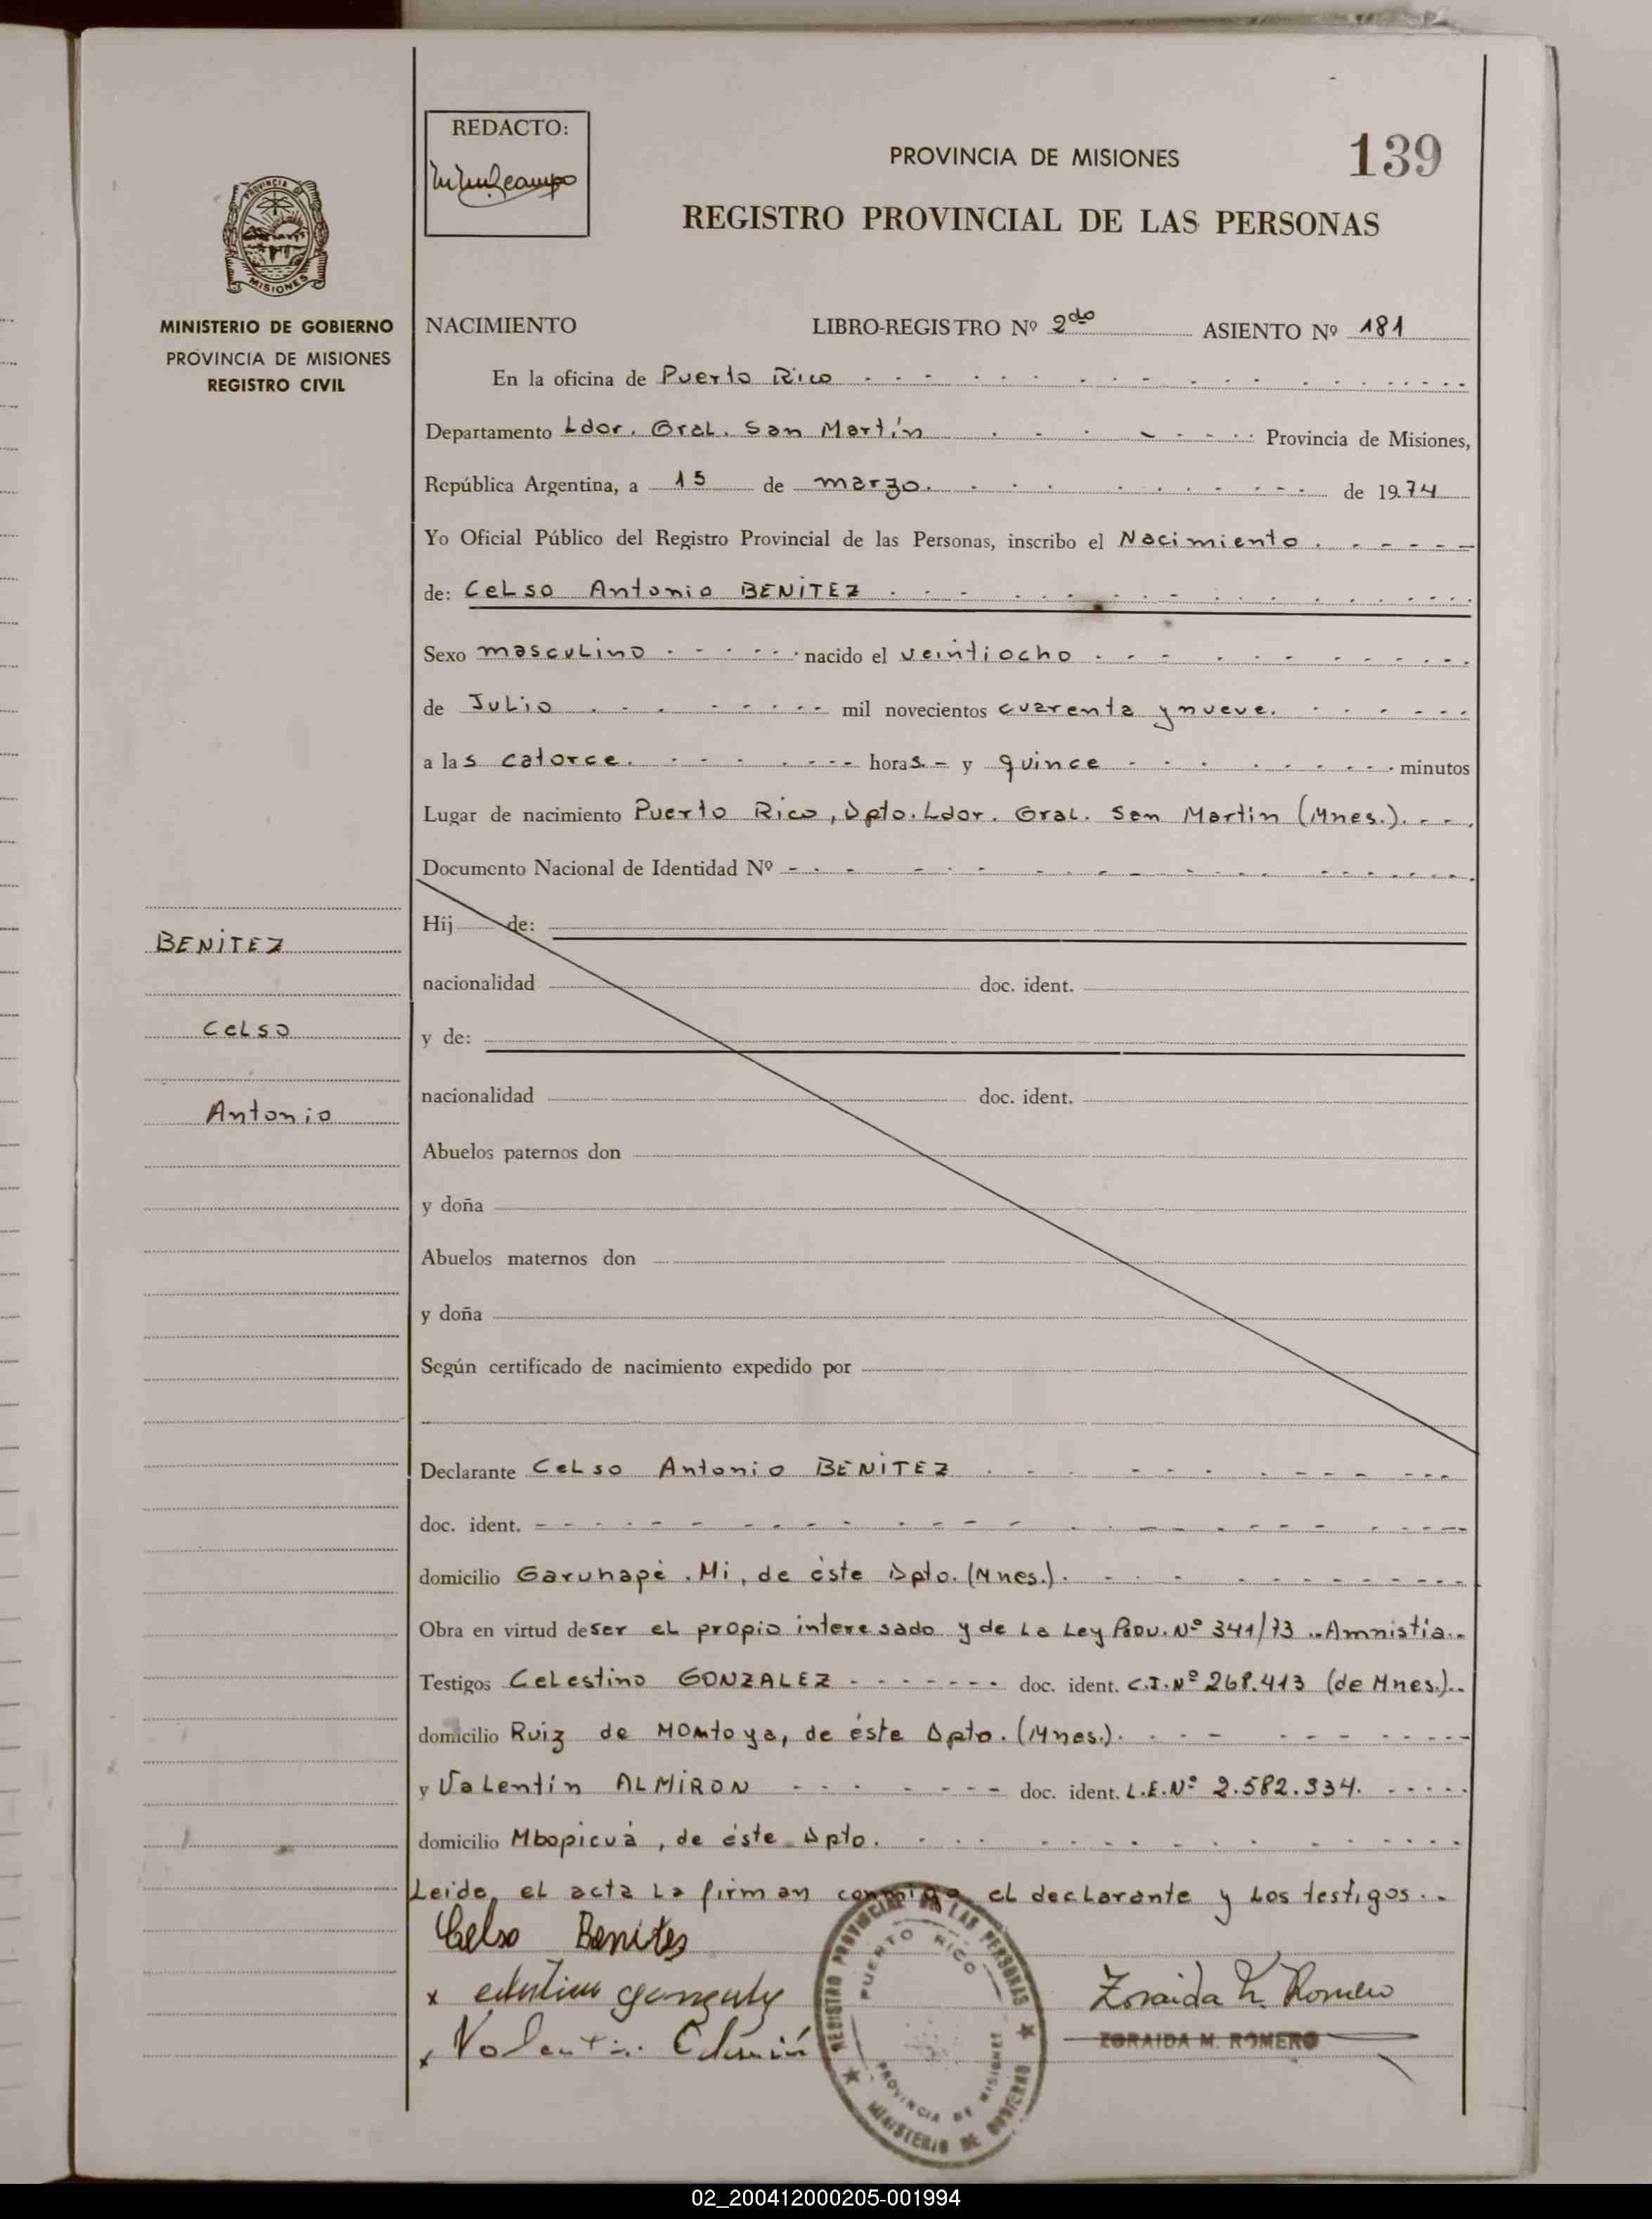 REDACTO:
PROVINCIA DE MISIONES
139
REGISTRO PROVINCIAL DE LAS PERSONAS
PROVINCIA DE
MISIONES
MINISTERIO DE GOBIERNO
PROVINCIA DE MISIONES
REGISTRO CIVIL
NACIMIENTO LIBRO-REGISTRO Nº 2do ASIENTO Nº 181
En la oficina de Puerto Rico
Departamento Ldor. Gral. San Martín Provincia de Misiones,
República Argentina, a 15 de marzo. de 1974
Yo Oficial Público del Registro Provincial de las Personas, inscribo el Nacimiento
de: Celso Antonio BENITEZ
Sexo masculino nacido el veintiocho
de Julio mil novecientos cuarenta y nueve.
a las catorce. horas - y quince minutos
Lugar de nacimiento Puerto Rico, Dpto. Ldor. Gral. San Martin (Mnes.).
Documento Nacional de Identidad Nº
Hij de:
BENITEZ
nacionalidad doc. ident.
Celso
y de:
nacionalidad doc. ident.
Antonio
Abuelos paternos don
y doña
Abuelos maternos don
y doña
Según certificado de nacimiento expedido por
Declarante Celso Antonio BENITEZ
doc. ident.
domicilio Garuhapé . Mi, de éste Dpto. (Mnes.).
Obra en virtud de ser el propio interesado y de La Ley Prov. Nº 341/73 .. Amnistía..
Testigos Celestino GONZALEZ doc. ident. C.I. Nº 268.413 (de Mnes.)..
domicilio Ruiz de Montoya, de éste Dpto. (Mnes.).
y Valentín ALMIRON doc. ident. L.E. Nº 2.582.334.
domicilio Mbopicuá, de éste Dpto.
Leida, el acta la firman conmigo, el declarante y los testigos..
Celso Benites
x
Zoraida M. Romero
ZORAIDA M. ROMERO
REGISTRO PROVINCIAL DE LAS PERSONAS
PUERTO RICO
PROVINCIA DE MISIONES
MINISTERIO DE GOBIERNO
02_200412000205-001994